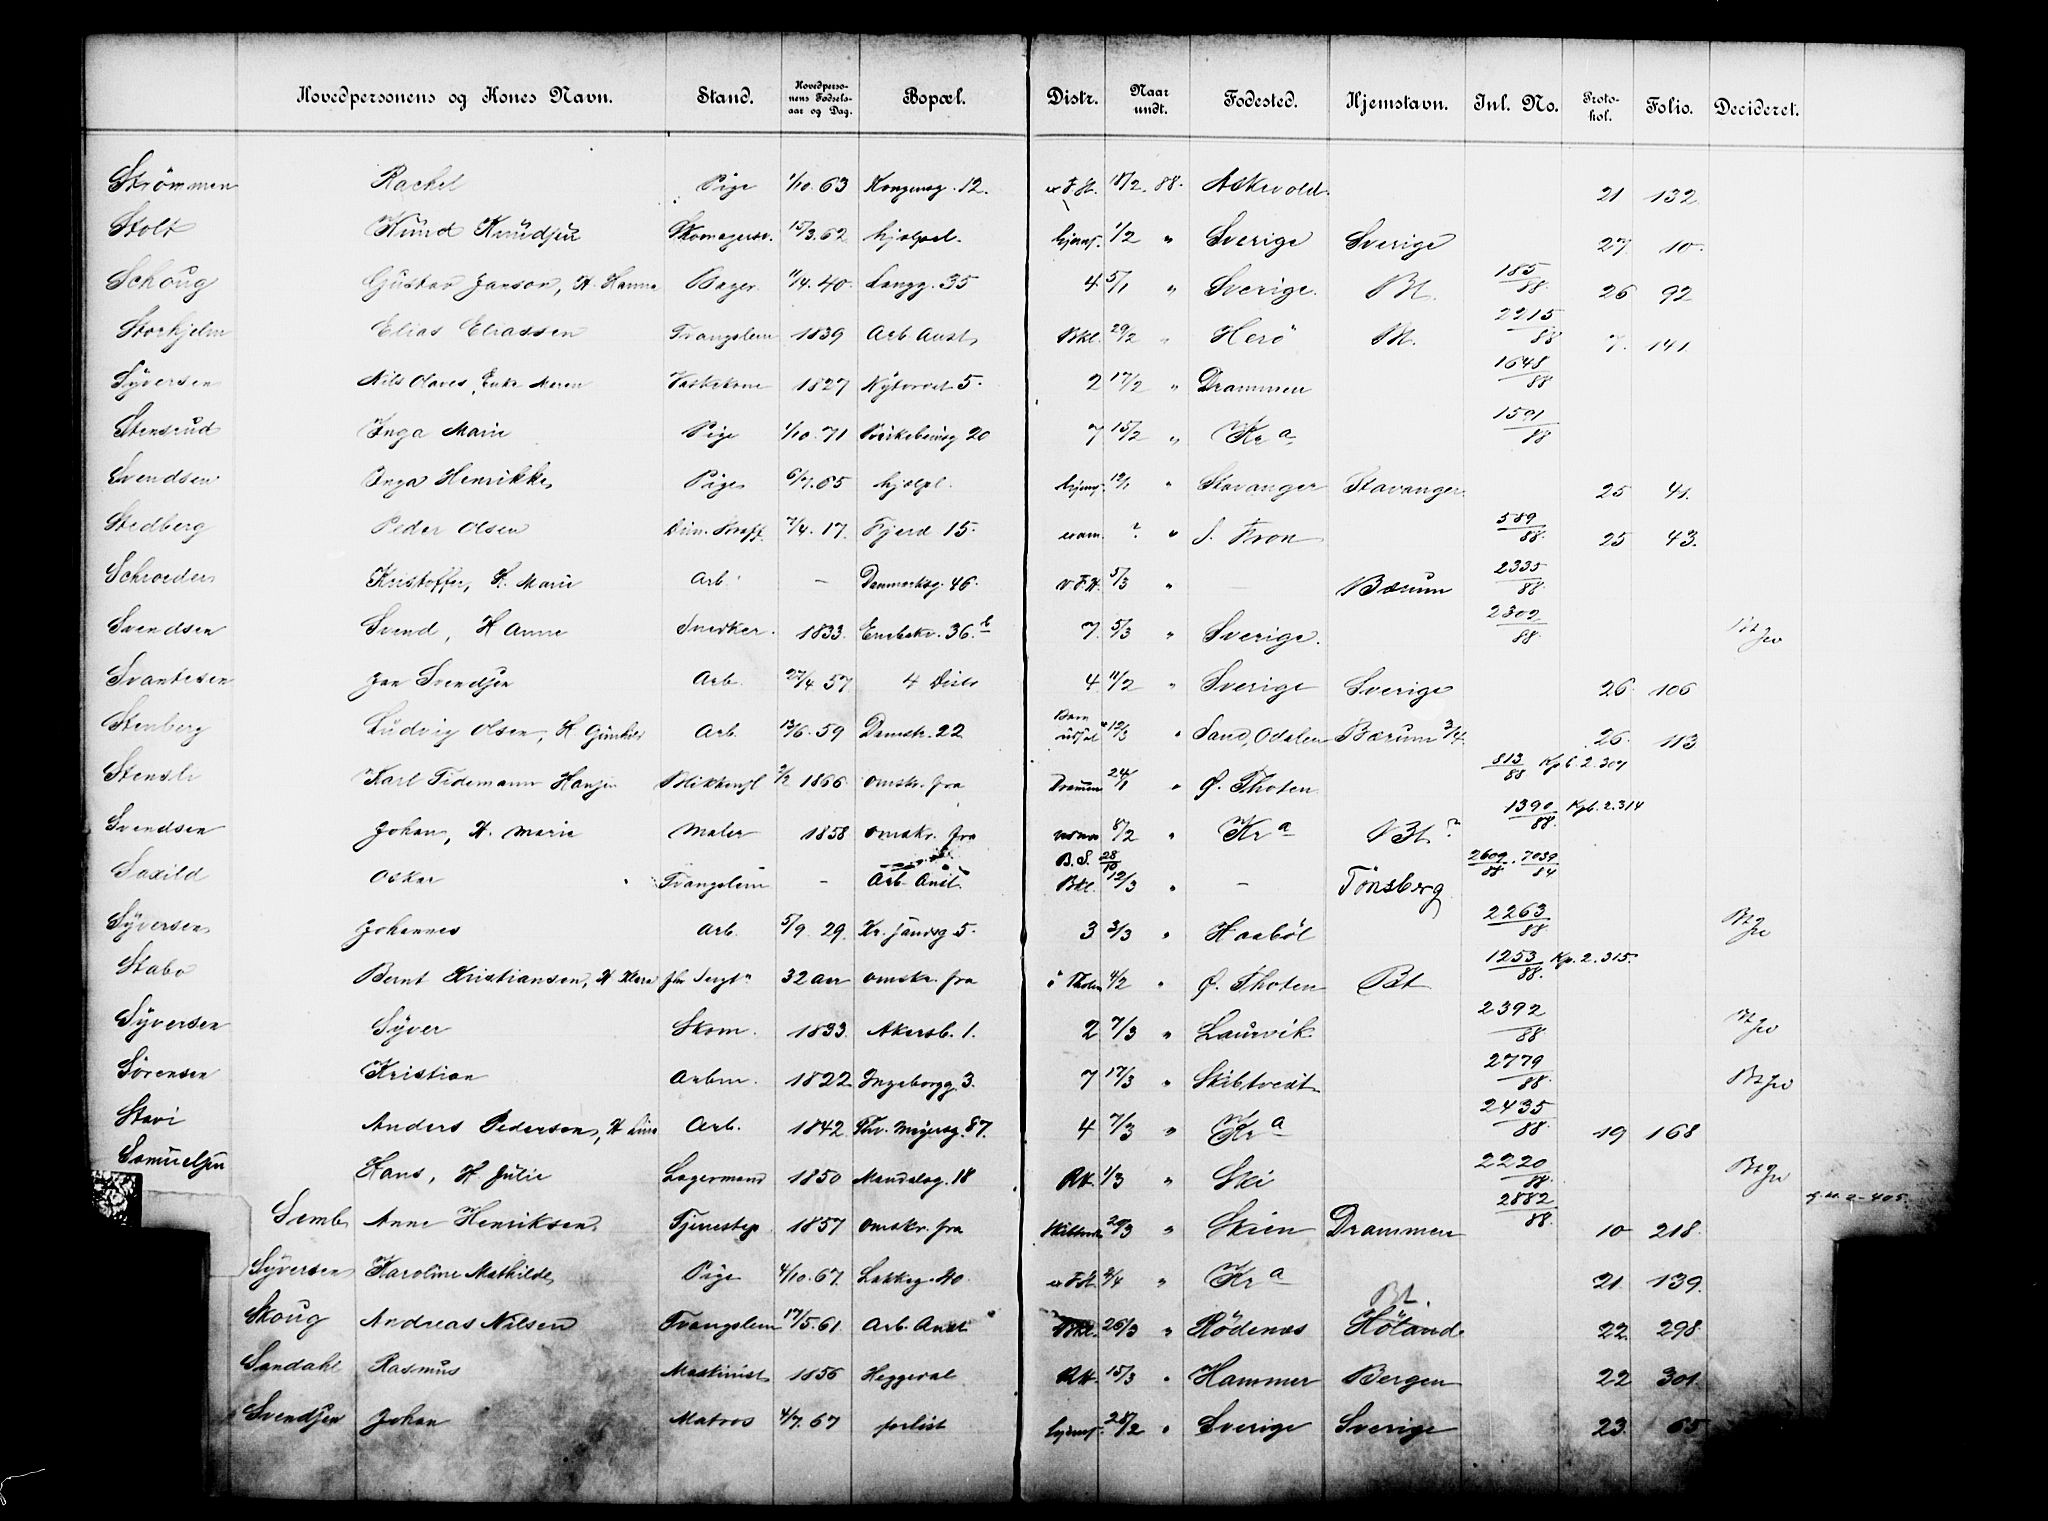 Hovedpersonens og Kones Navn. Stand. Hovedperso-nens Fødsels-aar og Dag. Bopæl. Distr. Naar undt. Fødested. Hjemstavn. Inl. No. Proto-kol. Folio. Decideret.
Strömmen Rachel Pige 1/10.63 Kongensg. 12. 18/2 88. Askevold. 21 132
Stolt Knud Knudsen 15/3.62 hjælpel. hjemf. 1/2 " Sverige Sverige 27. 10.
Schoug Gustav Janson, H. Hanna Bager. 11/4.40. Langg. 35 4 5/1 " Sverige. Bt. 185/88 26 92
Elias Eliassen Tvangslem 1839 Arb Anst. Bkl. 29/2 " Herö Bt. 2215/88 7. 141.
Syversen Nils Olaves, Enke Maren Vaskekone 1827 Nytorvet 5. 2 17/2 " Drammen 1648/88
Stensrud Inga Marie Pige 1/10.71 20 7 15/2 " Kr a 1501/88
Svendsen Inga Henrikke Pige 6/7.65 hjælpl. hjemf. 12/1 " Stavanger Stavanger. 25 41.
Stedberg Peder Olsen 7/4.17. Fjerd 15. ? " S. Fron 589/88 25 43.
Schroeder Kristoffer, H. Marie Arb. — Danmarksg. 46. v F.H. 5/3 " — Bærum 2335/88
Svendsen Svend, H Anne Snedker. 1833. Enebakv. 36. b 7. 5/3 " Sverige. 2302/88
Svantesen Jan Svendsen Arb. 27/4 57 4 Distr 4 11/2 " Sverige Sverige 26. 106
Stenberg Ludvig Olsen, H Arb. 13/6.59 Damstr. 22 12/3 " Sand, Odalen Bærum 3/4. 26. 113
Stensli Karl Tidemann Hansen 2/2 1866. omskr. fra Drammen 24/1 " Ø. Thoten 813/88 Kpb. 2.307
Svendsen Johan, H. Marie Maler 1858 omskr. fra 8/2 " Kr a Bt ? 1390/88. Kpb. 2.314
Saxild Oskar Tvangslem — Arb. Anst. B.S. 28/10 Bkl. 12/3 " — Tönsberg 2609/88. 7039/84
Syversen Johannes Arb. 5/9 29. Kr. 5. 3 3/3 " Haaböl 2263/88
Stabo Bernt Kristiansen, H Klara 32 aar omskr. fra Ø Thoten 4/2 " Ø. Thoten Bt 1253/88. Kp. 2.315.
Syversen Syver Skom. 1833. Akersb. 1. 2 7/3 " Laurvik 2392/88
Sörensen Kristian Arbm. 1822 Ingeborgg. 3. 7 17/3 " Skibtvedt 2779/88.
Anders Pedersen, H Arb. 1842 Thv. Meyersg. 87. 4 7/3 " Kr a 2435/88. 19 168
Samuelsen Hans, H. Julie Lagermand 1850 Mandalsg. 18 1/3 " Ski 2220/88.
Semb Anne Henriksen Tjenestep. 1857 omskr. fra 20/3 " Skien Drammen 2882/88. 10 218.
Syversen Karoline Mathilde Pige 4/10.67. Lakkeg. 40. 21. 139.
Skoug Andreas Nilsen Tvangslem 17/5.61. Arb. Anst Bkl. 26/3 " Rödenæs Bt. Höland 22. 298.
Sandahl Rasmus Maskinist 1856 15/3 " Hammer Bergen 22 301.
Svendsen Johan Matros 4/7.67 forlist hjemf. 28/2 " Sverige Sverige 23. 65